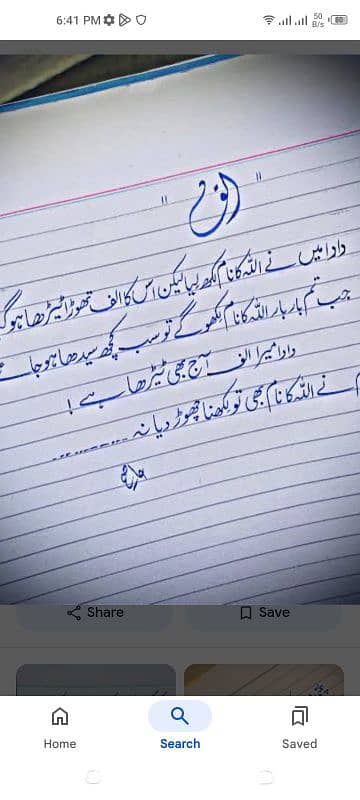 6:41 PM
50 B/s
80
"الف"
دادا میں نے اللہ کا نام لکھ لیا لیکن اس کا الف تھوڑا ٹیڑھا ہو گ
جب تم بار بار اللہ کا نام لکھو گے تو سب کچھ سیدھا ہو جائے
دادا میرا الف آج بھی ٹیڑھا ہے!
نے اللہ کا نام بھی تو لکھنا چھوڑ دیا نہ ----------
Share
Save
Home
Search
Saved